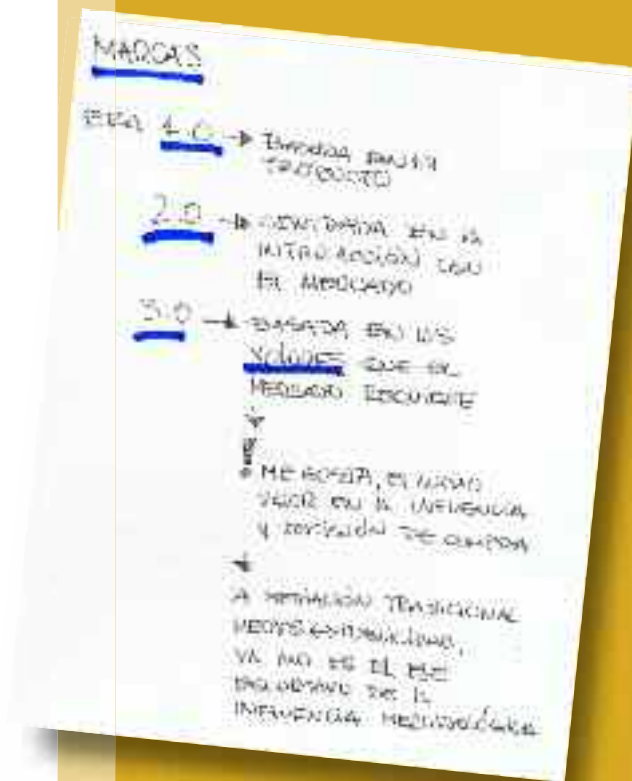 MARCAS
ERA 1.0 → BASADA EN EL
PRODUCTO
2.0 → CENTRADA EN LA
INTERACCIÓN CON
EL MERCADO
3.0 → BASADA EN LOS
VALORES QUE EL
MERCADO
EL NUEVO
VALOR EN LA INFLUENCIA
Y DECISIÓN DE COMPRA
A TRADICIONAL
YA NO ES EL EJE
DE LA
INFLUENCIA